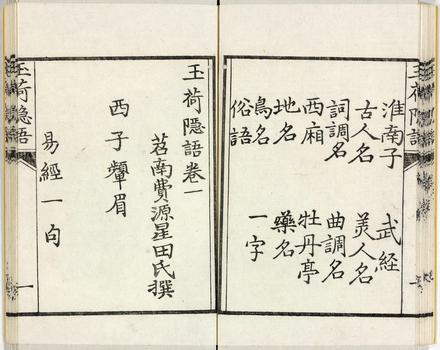 淮南子 武經
古人名 美人名
詞調名 曲調名
西廂 牡丹亭
地名 藥名
鳥名 一字
俗語
玉荷隱語卷一
苕南費源星田氏撰
西子顰眉
易經一句
玉荷隱語
一